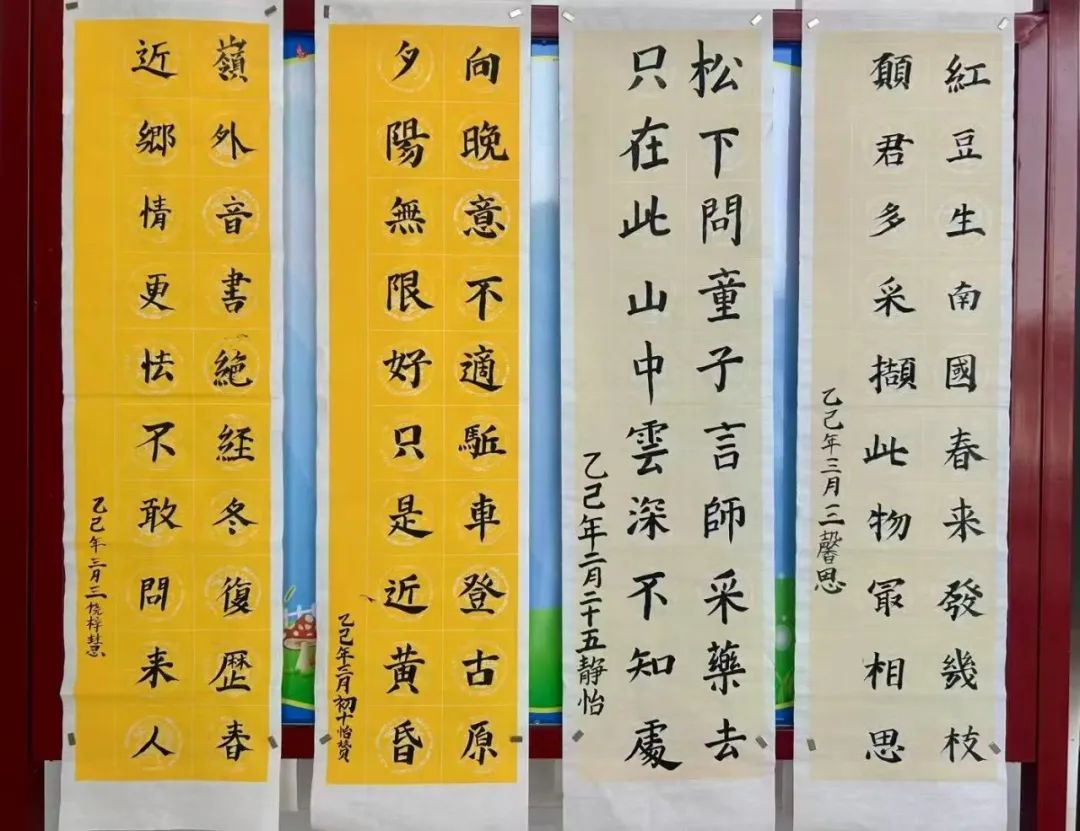 紅豆生南國春来發幾枝
願君多采擷此物冣相思
乙己年三月三馨思
松下問童子言師采藥去
只在此山中雲深不知處
乙己年二月二十五静怡
向晚意不適駈車登古原
夕陽無限好只是近黄昏
乙己年三月初十怡贊
嶺外音書絶経冬復歴春
近鄉情更怯不敢問来人
乙己年三月三梓慧